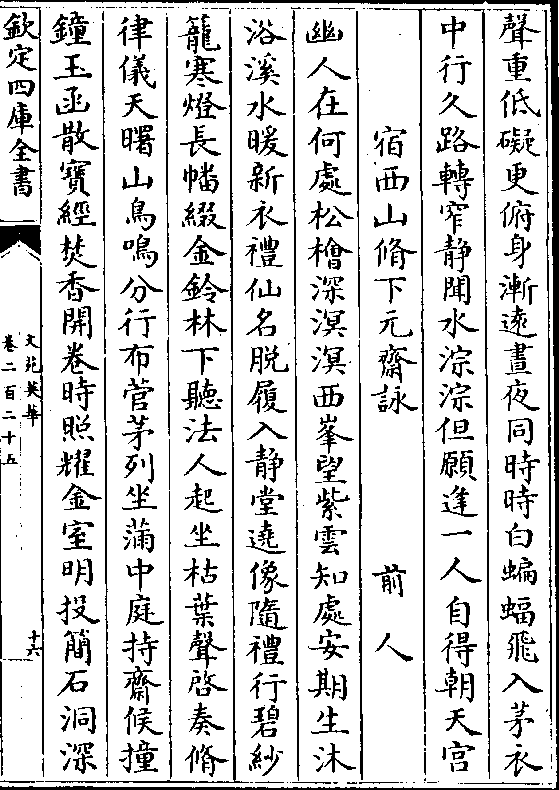 聲重低礙更俯身漸遠晝夜同時時白蝙蝠飛入茅衣
中行久路轉窄静聞水淙淙但願逢一人自得朝天宫
宿西山脩下元齋詠 前人
幽人在何處松檜深溟溟西峯望紫雲知處安期生沐
浴溪水暖新衣禮仙名脱履入静堂遶像隨禮行碧紗
籠寒燈長幡綴金鈴林下聽法人起坐枯葉聲啓奏脩
律儀天曙山鳥鳴分行布菅茅列坐蒲中庭持齋候撞
鐘玉函散寶經焚香開卷時照耀金室明投簡石洞深
欽定四庫全書
文苑英華
卷二百二十五
十六